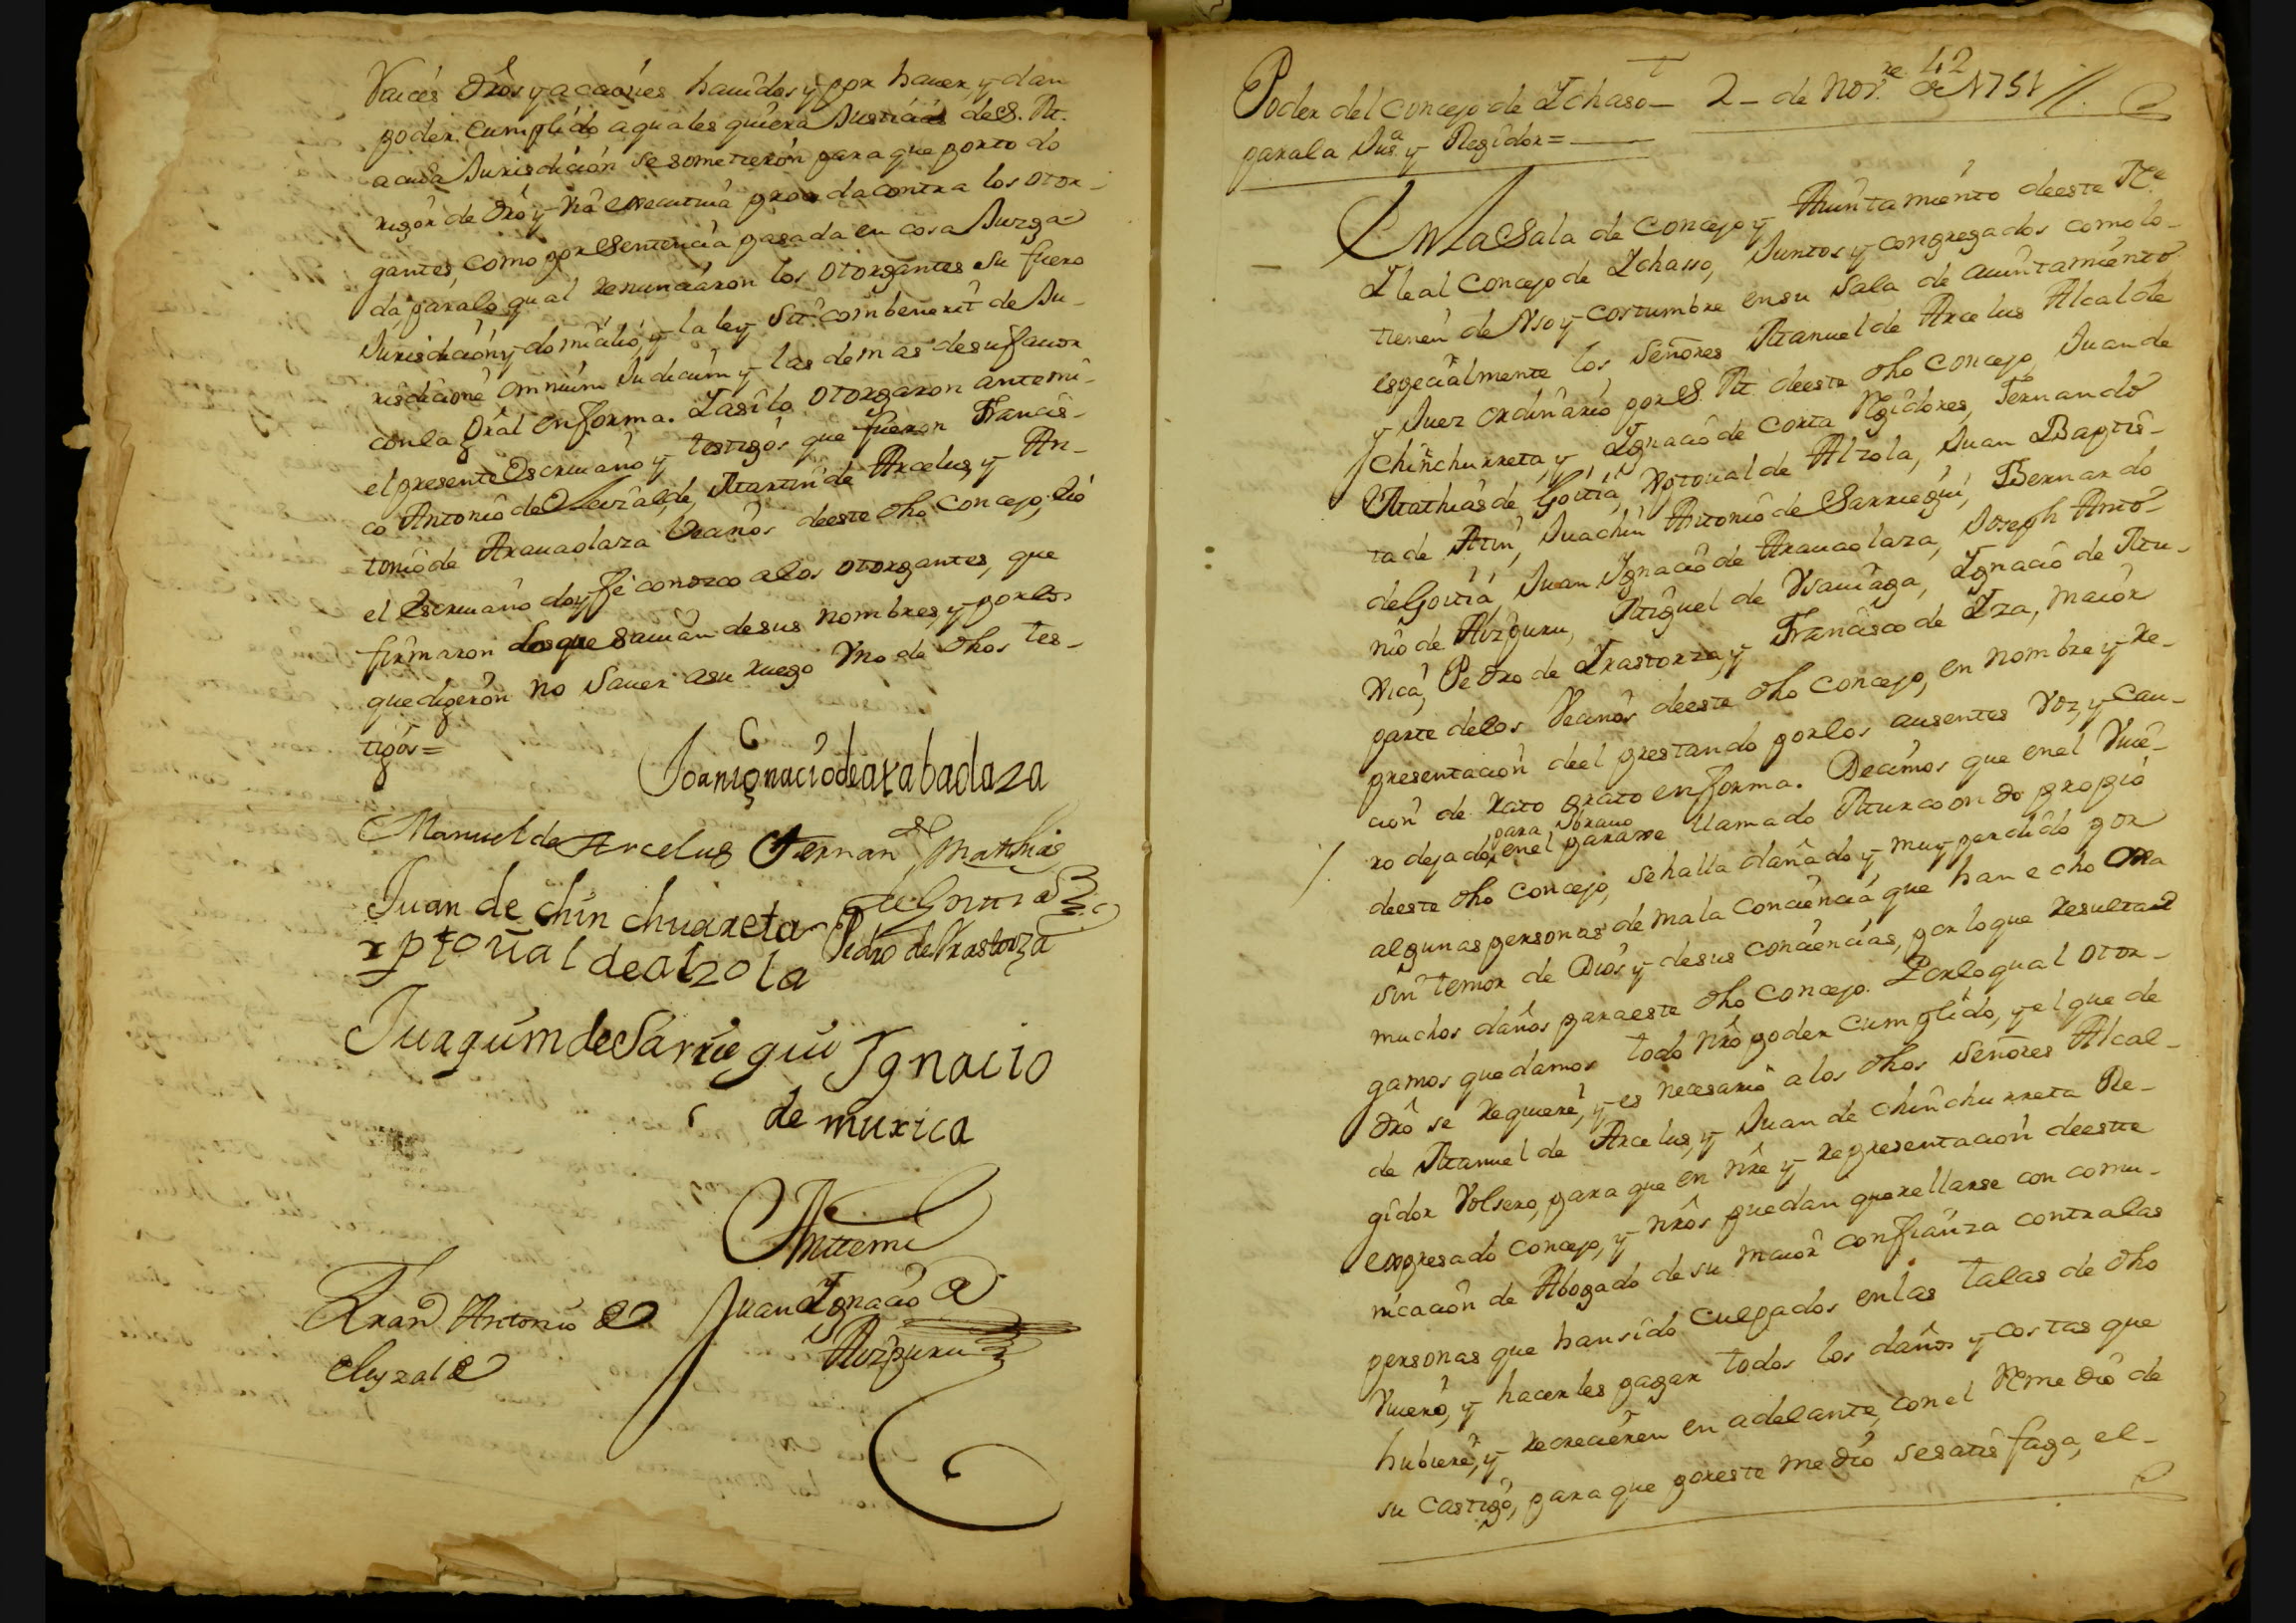 Raices dros y acciones hauidos y por hauer, y dan
poder cumplido a quales quiera Justicias de S. M.
a cuia Jurisdicion se sometieron para que por todo
rigor de dro y via executiua proceda contra los otor-
gantes, como por Sentencia pasada en cosa Juzga-
da, para lo qual renunciaron los otorgantes su fuero
Jurisdicion y domicilio, y la ley Sit combenerit de Ju-
risdicione omnium Judicum y las demas de su fauor
con la gral en forma. Y asi lo otorgaron ante mi
el presente Escriuano y testigos que fueron Francis-
co Antonio de Eleizalde, Martin de Arcelus, y An-
tonio de Arauaolaza Vecinos de este dho Concejo, é io
el Escriuano doy fé conozco a los otorgantes, que
firmaron los que sauian de sus nombres, y por los
que digeron no sauer a su ruego Vno de dhos tes-
tigos=
Joan ignacio de arabaolaza
Manuel de Arcelus Fernando Mathias
de Goitia
Juan de chin churreta
Pedro de Yrastorza
xptoual de alzola
Juaquim de Sarriegui Ignacio
de muxica
Ante mi
Fran Antonio de
Eleyzalde
Juan Ygnacio de
Aizpuru
42
Poder del Concejo de Ychaso - 2 - de Nov.re de 1751 //.
para la Jus.a y Regidor=
En La Sala de Concejo y Aiuntamiento de este N.e
Y leal Concejo de Ychasso, Juntos y congregados como lo
tienen de Vso y costumbre en su Sala de aiuntamiento
especialmente los Señores Manuel de Arcelus Alcalde
y Juez ordinario por S. M. de este dho Concejo, Juan de
Chinchurreta, y Ygnacio de Corta Regidores, Fernando
Mathias de Goitia, Xptoual de Alzola, Juan Baptis-
ta de Atin, Juachin Antonio de Sarriegui, Bernardo
de Goitia, Juan Ygnacio de Arauaolaza, Joseph Anto-
nio de Aizpuru, Miguel de Vsauiaga, Ygnacio de Mu-
xica, Pedro de Yrastorza, y Francisco de Yza, maior
parte de los Vecinos de este dho Concejo, en nombre y re-
presentacion de el prestando por los ausentes Voz, y Cau-
cion de rato grato en forma. Decimos que en el Viue-
ro dejado, para Jbrauo en el parage llamado Murcoondo propio
de este dho Concejo, se halla dañado y muy perdido por
algunas personas de mala conciencia que han echo
sin temor de Dios y de sus conciencias, por lo que resultan
muchos daños para este dho Concejo. Por lo qual otor-
gamos que damos todo nro poder cumplido, y el que de
dro se requiere, y es necesario a los dhos Señores Alcal-
de Manuel de Arcelus, y Juan de chinchurreta Re-
gidor Volsero, para que en nre y representacion de este
expresado Concejo, y nros puedan querellarse con comu-
nicacion de Abogado de su maior confianza contra las
personas que han sido culpados en las talas de dho
Viuero, y hacerles pagar todos los daños y costas que
hubiere, y recrecieren en adelante, con el remedio de
su castigo, para que por este medio se satisfaga, el-